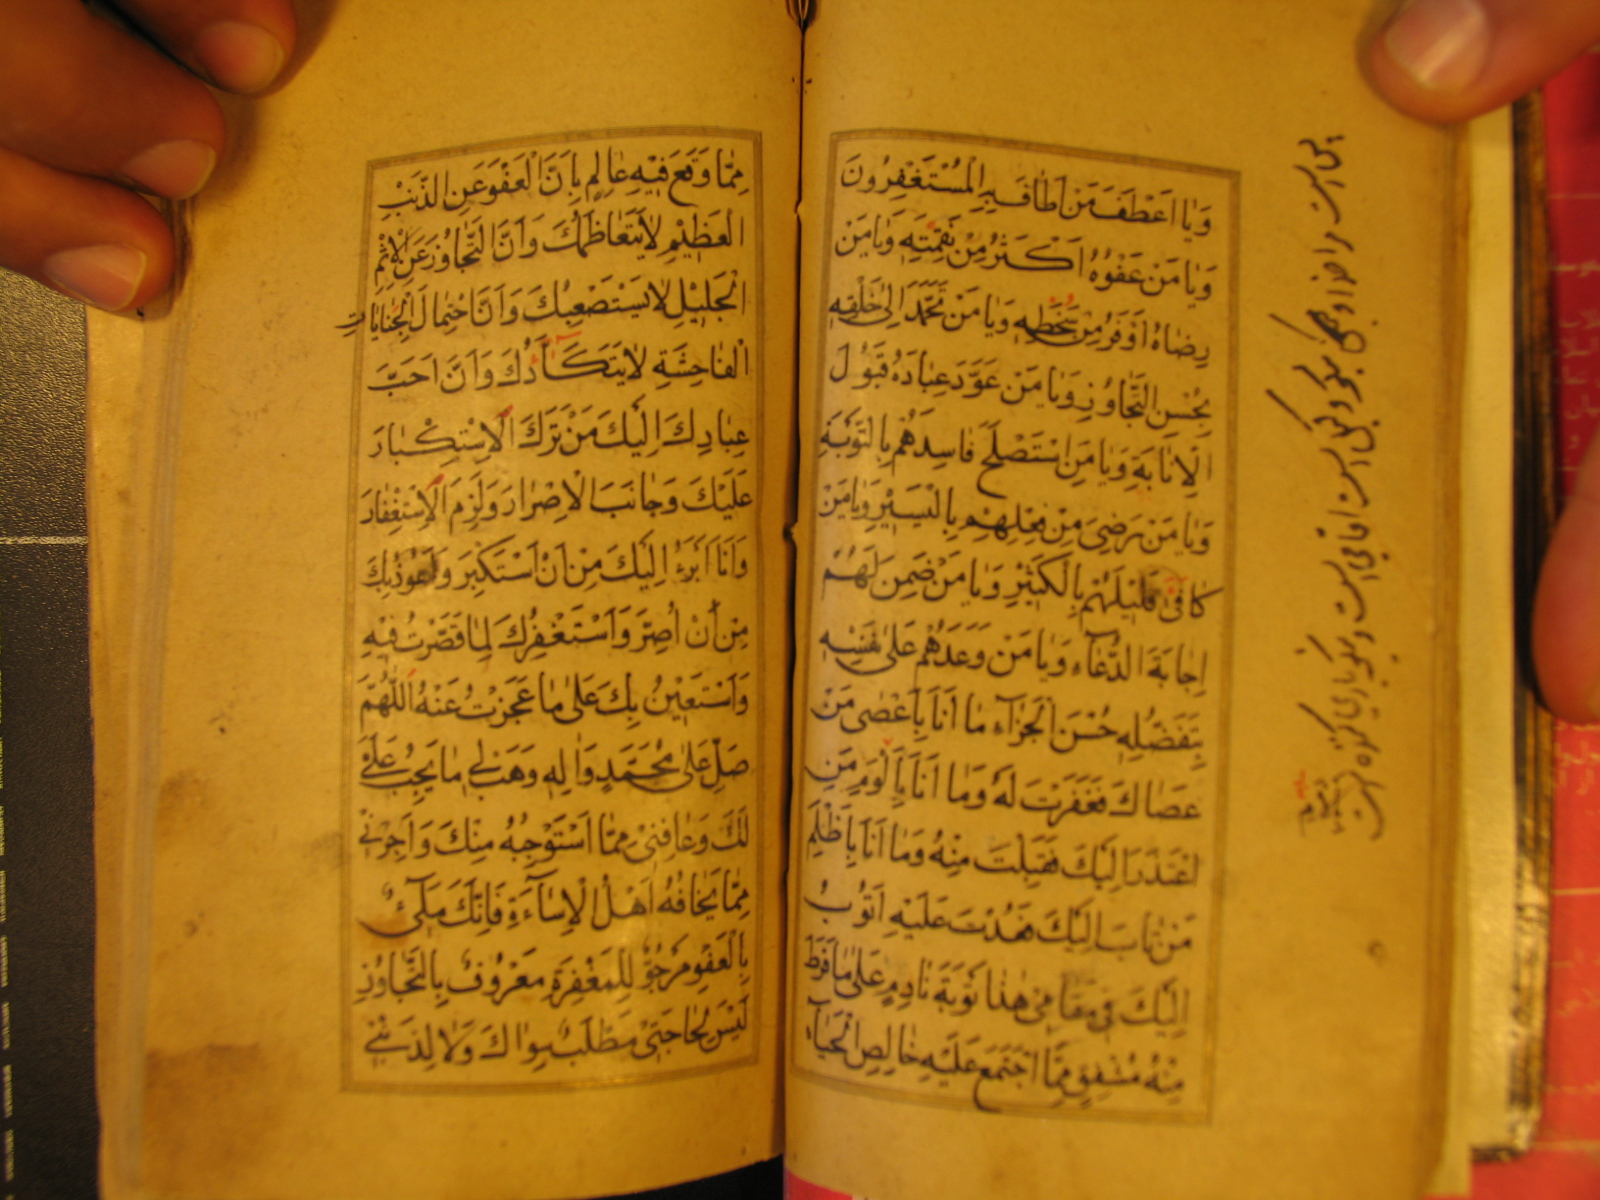 وَيَا اَعْطَفَ مَنْ اَطَافَ بِهِ الْمُسْتَغْفِرُونَ
وَيَا مَنْ عَفْوُهُ اَكْثَرُ مِنْ نَقِمَتِهِ وَيَا مَنْ
رِضَاهُ اَوْفَرُ مِنْ سَخَطِهِ وَيَا مَنْ تَحَمَّدَ اِلٰى خَلْقِهِ
بِحُسْنِ التَّجَاوُزِ وَيَا مَنْ عَوَّدَ عِبَادَهُ قَبُولَ
الْاِنَابَةِ وَيَا مَنِ اسْتَصْلَحَ فَاسِدَهُمْ بِالتَّوْبَةِ
وَيَا مَنْ رَضِىَ مِنْ فِعْلِهِمْ بِالْيَسِيْرِ وَيَا مَنْ
كَافٰى قَلِيْلَهُمْ بِالْكَثِيْرِ وَيَا مَنْ ضَمِنَ لَهُمْ
اِجَابَةَ الدُّعَاءِ وَيَا مَنْ وَعَدَهُمْ عَلٰى نَفْسِهِ
بِتَفَضُّلِهِ حُسْنَ الْجَزَاءِ مَا اَنَا بِاَعْصٰى مَنْ
عَصَاكَ فَغَفَرْتَ لَهُ وَمَا اَنَا بِاَلْوَمِ مَنِ
اعْتَذَرَ اِلَيْكَ فَقَبِلْتَ مِنْهُ وَمَا اَنَا بِاَظْلَمِ
مَنْ تَابَ اِلَيْكَ فَعُدْتَ عَلَيْهِ اَتُوْبُ
اِلَيْكَ فِى مَقَامِى هٰذَا تَوْبَةَ نَادِمٍ عَلٰى مَا فَرَطَ
مِنْهُ مُشْفِقٍ مِمَّا اجْتَمَعَ عَلَيْهِ خَالِصِ الْحَيَاءِ
مِمَّا وَقَعَ فِيْهِ عَالِمٍ بِاَنَّ الْعَفْوَ عَنِ الذَّنْبِ
الْعَظِيْمِ لَا يَتَعَاظَمُكَ وَاَنَّ التَّجَاوُزَ عَنِ الْاِثْمِ
الْجَلِيْلِ لَا يَسْتَصْعِبُكَ وَاَنَّ احْتِمَالَ الْجِنَايَاتِ
الْفَاحِشَةِ لَا يَتَكَاَّدُكَ وَاَنَّ اَحَبَّ
عِبَادِكَ اِلَيْكَ مَنْ تَرَكَ الْاِسْتِكْبَارَ
عَلَيْكَ وَجَانَبَ الْاِصْرَارَ وَلَزِمَ الْاِسْتِغْفَارَ
وَاَنَا اَبْرَءُ اِلَيْكَ مِنْ اَنْ اَسْتَكْبِرَ وَاَعُوْذُ بِكَ
مِنْ اَنْ اُصِرَّ وَاَسْتَغْفِرُكَ لِمَا قَصَّرْتُ فِيْهِ
وَاَسْتَعِيْنُ بِكَ عَلٰى مَا عَجَزْتُ عَنْهُ اَللّٰهُمَّ
صَلِّ عَلٰى مُحَمَّدٍ وَاٰلِهِ وَهَبْ لِى مَا يَجِبُ عَلَىَّ
لَكَ وَعَافِنِى مِمَّا اَسْتَوْجِبُهُ مِنْكَ وَاَجِرْنِى
مِمَّا يَخَافُهُ اَهْلُ الْاِسَاءَةِ فَاِنَّكَ مَلِىءٌ
بِالْعَفْوِ مَرْجُوٌّ لِلْمَغْفِرَةِ مَعْرُوْفٌ بِالتَّجَاوُزِ
لَيْسَ لِحَاجَتِى مَطْلَبٌ سِوَاكَ وَلَا لِذَنْبِى